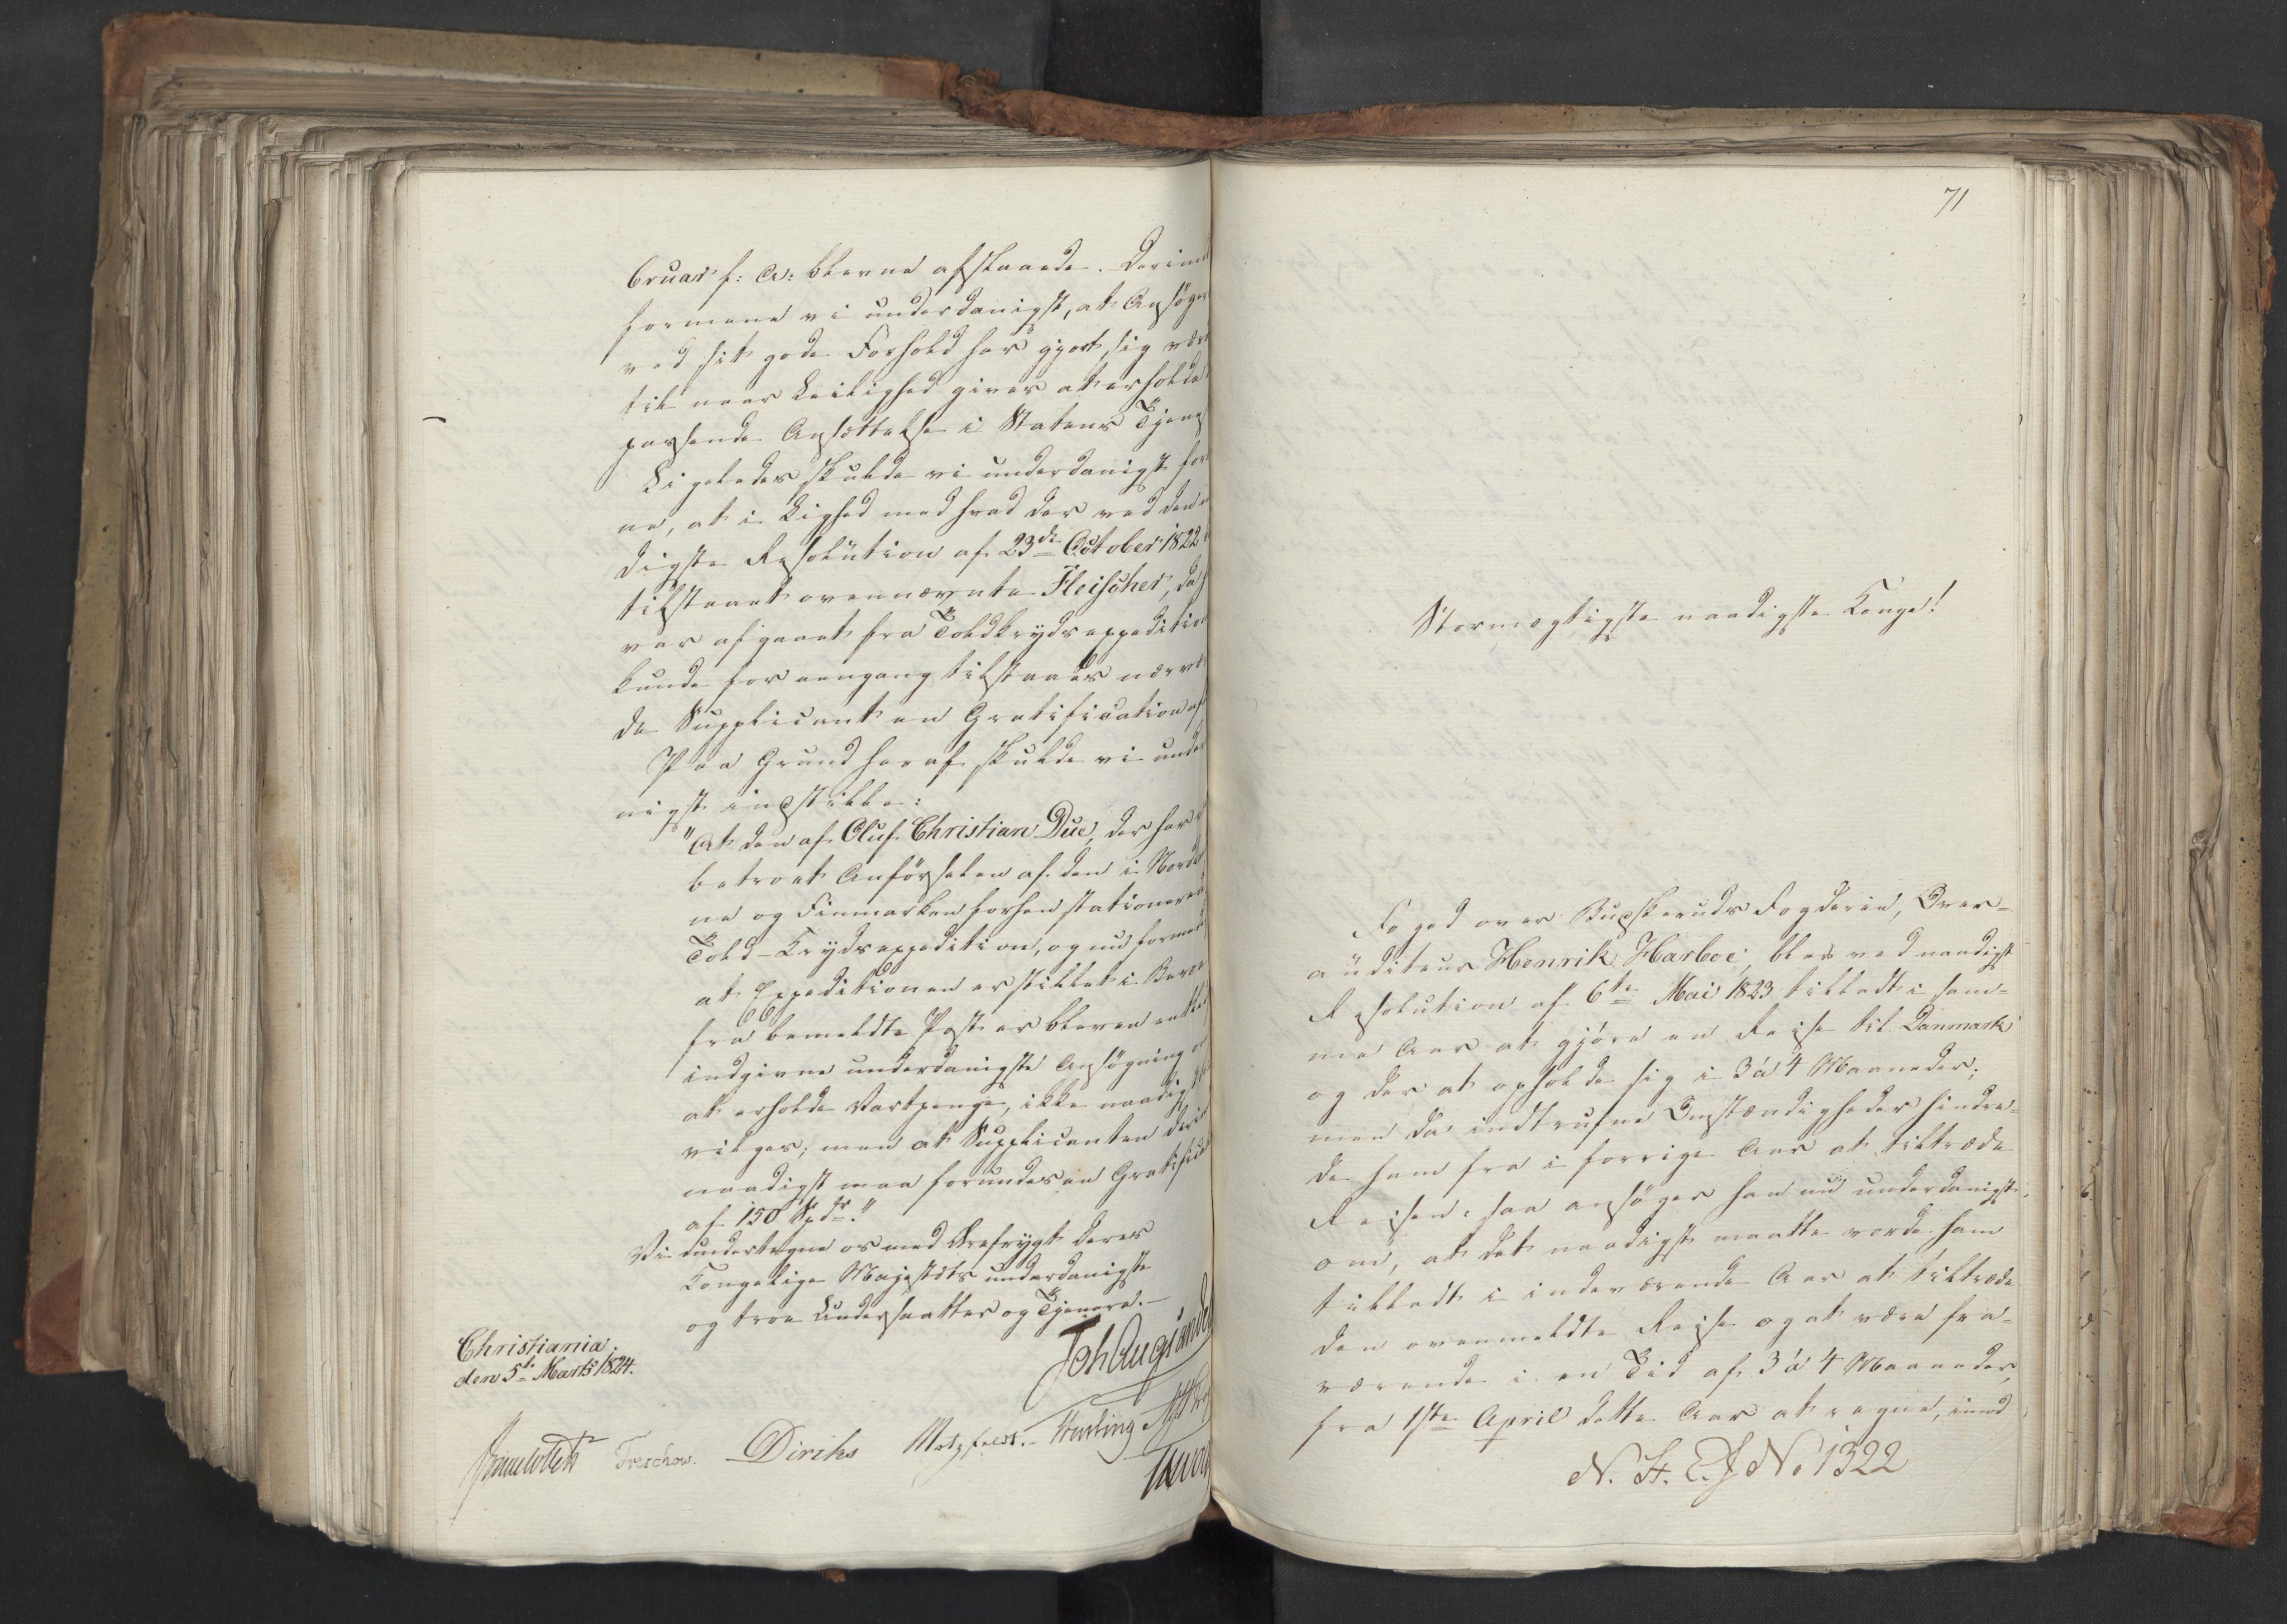 bruar f: A: blevne afslaaede. Derimod
formene vi underdanigst, at Ansøger
ved sit gode Forhold har gjort sig vær
til naar Leilighed gives at erholde
passende Ansættelse i Statens Tjenes
Ligeledes skulde vi underdanigst for
ne, at i Lighed med hvad der ved den
digste Resolution af 23de October 1822
tilstaaet ovennævnte Fleischer, da
var afgaaet fra Toldkrydsexpedition
kunde for eengang tilstaaes nærvæ
de Supplicant en Gratification af
Paa Grund heraf skulde vi under
nigst indstille:
"At den af Oluf Christian Due, der har
betroet Anførselen af den i Nord
ne og Finmarken forhen stationerede
Told-Krydsexpedition, og nu formed
at Expeditionen er stillet i Bero
fra bemeldte Post er bleven entle
indgivne underdanigste Ansøgning om
at erholde Vartpenge, ikke naadigst
vilges; men at Supplicanten der
naadigst maa forundes en Gratificat
af 150 Spdr."
Vi undertegne os med Ærefrygt Deres
Kongelige Majestæts underdanigste
og troe Undersaatter og Tjenere.-
Christiania
den 5te Marts 1824.
Joh Aug Sande
Treschow. Diriks Motzfeldt.
71
Stormægtigste naadigste Konge!
Foged over Buskeruds Fogderie, Over-
auditeur Henrik Harboe, blev ved naadigst
Resolution af 6te Mai 1823 tilladt i sam-
me Aar at gjøre en Reise til Danmark
og der at opholde sig i 3 á 4 Maaneder;
men da indtrufne Omstændigheder hindre-
de ham fra i forrige Aar at tiltræde
Reisen: saa ansøger han nu underdanigst
om, at det naadigst maatte vorde ham
tilladt i indeværende Aar at tiltræde
den ovenmeldte Reise og at være fra-
værende i en Tid af 3 á 4 Maaneder,
fra 1ste April dette Aar at regne, imod
No 1322